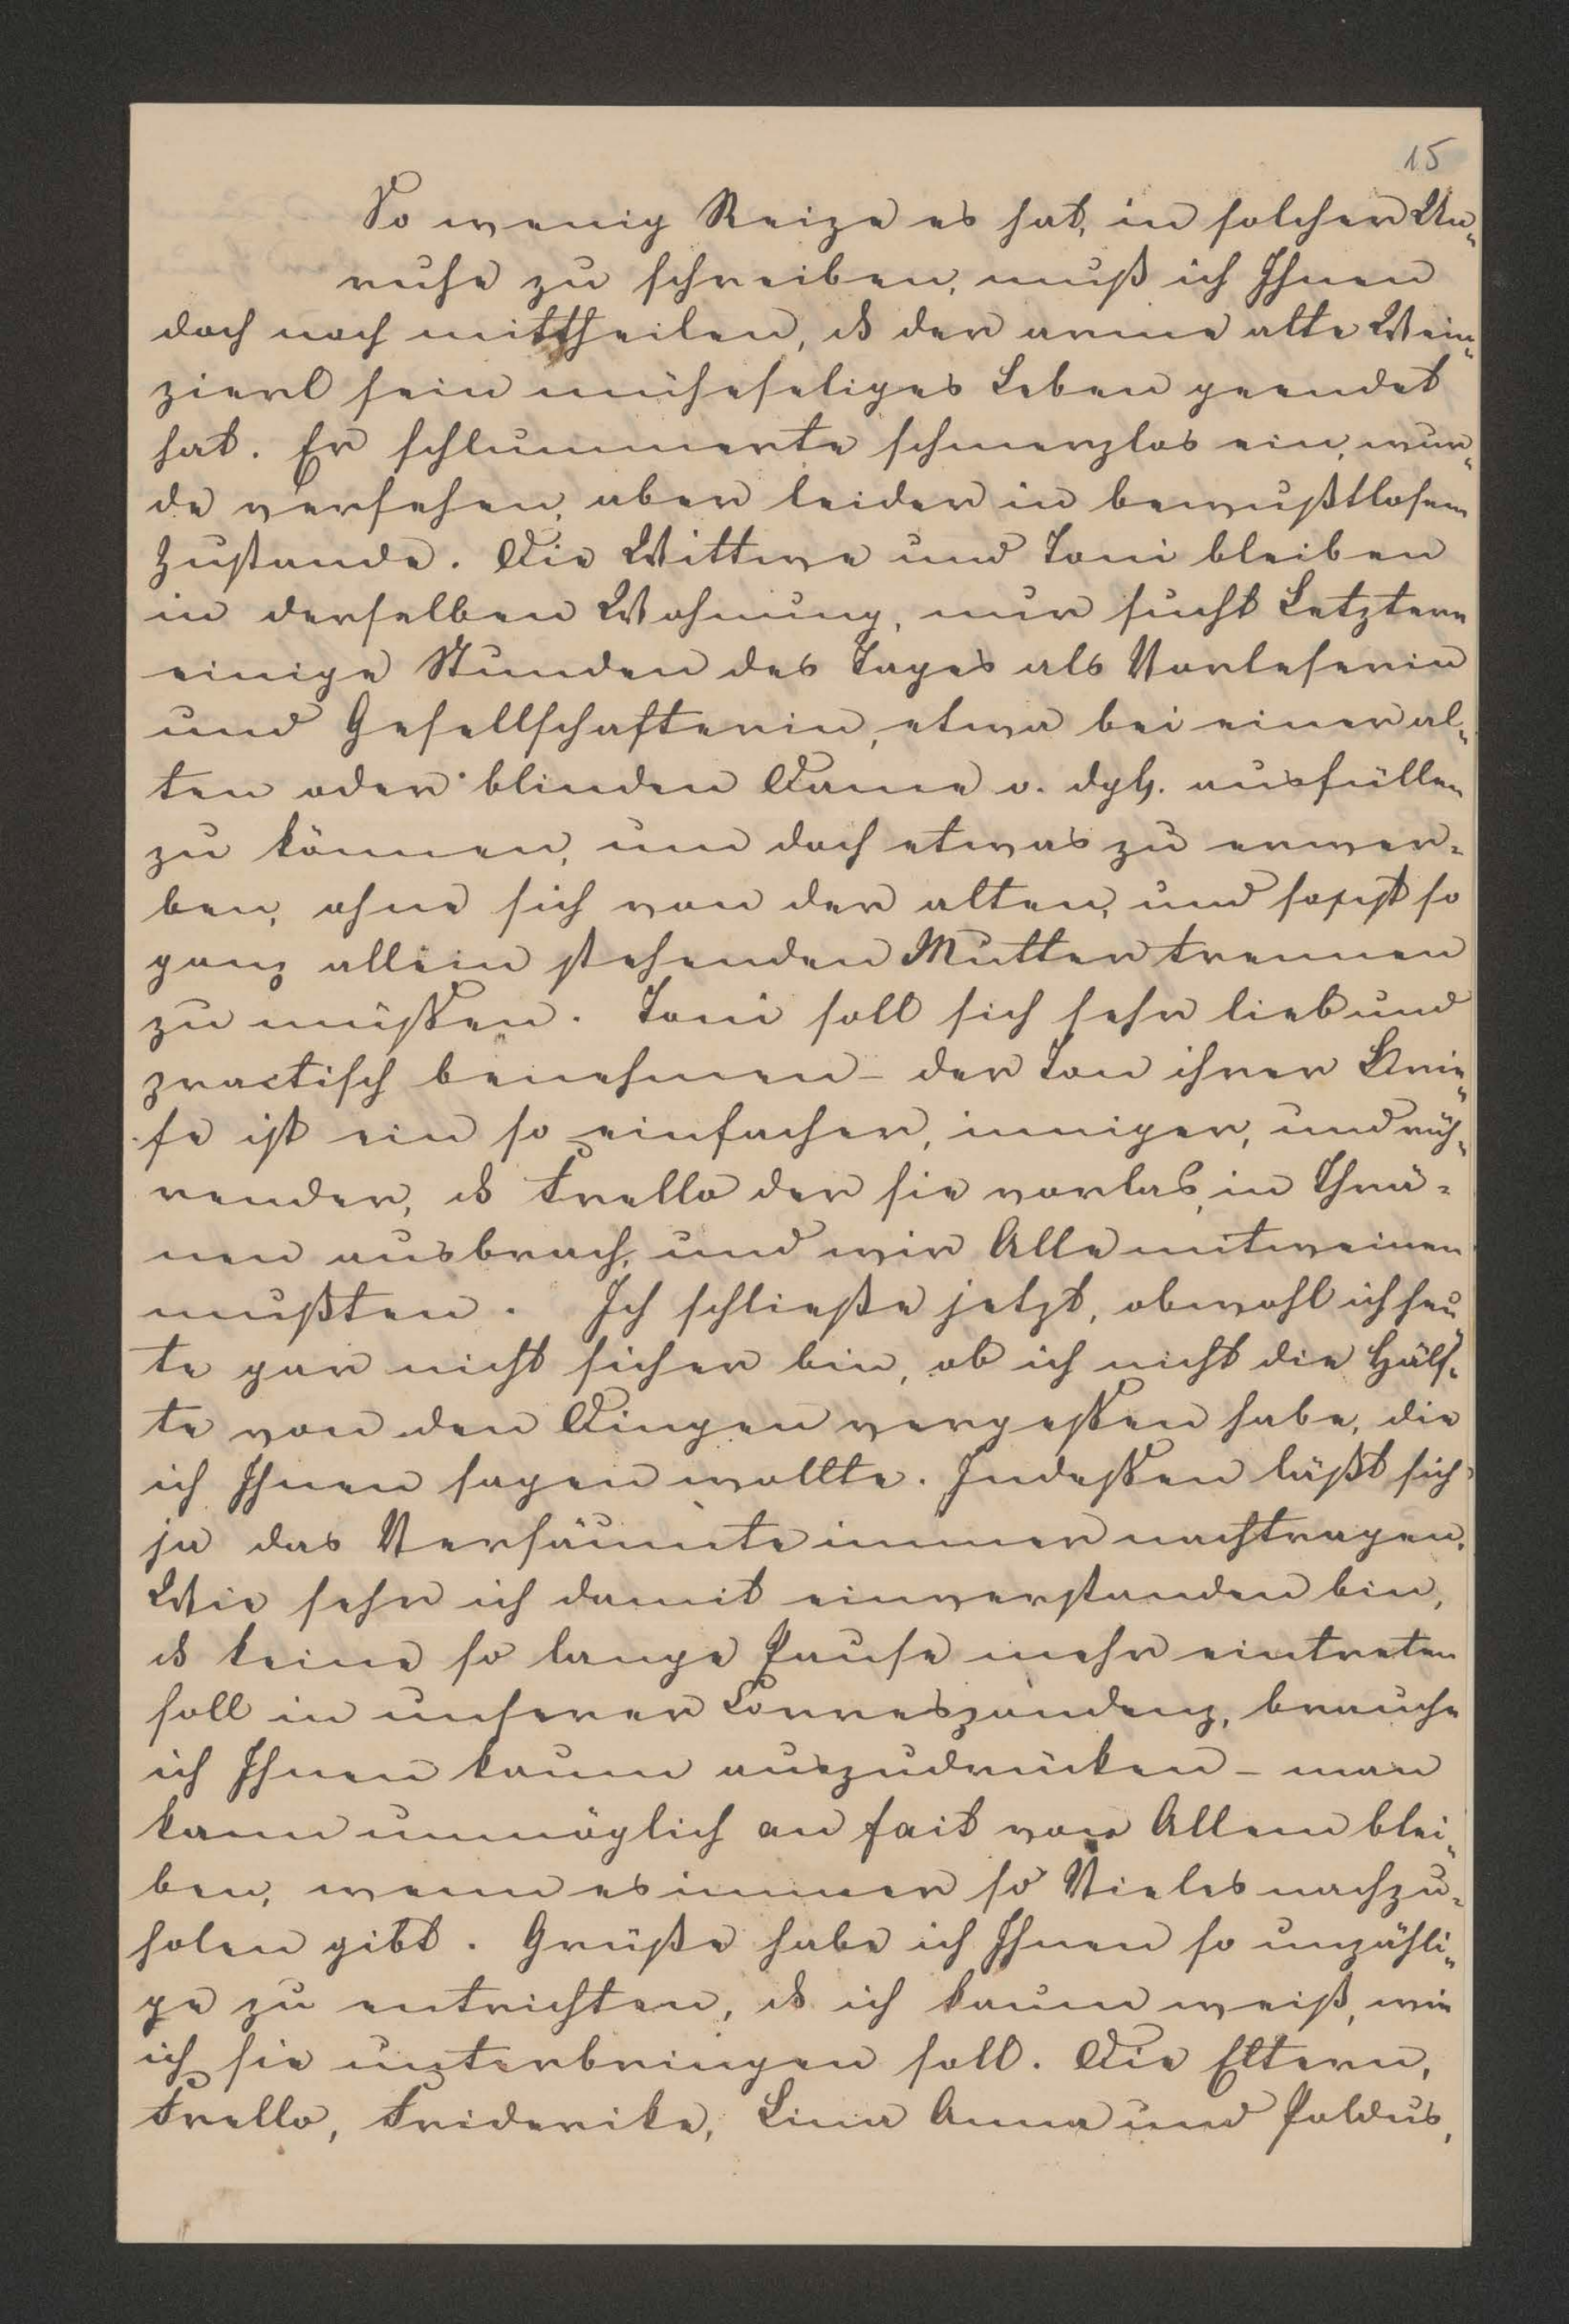 15
So wenig Reize es hat, in solcher Un„
ruhe zu schreiben, muß ich Ihnen
doch noch mittheilen, ds der arme alte Wein„
zierl sein müheseliges Leben geendet
hat. Er schlummerte schmerzlos ein, wur„
de versehen, aber leider in bewußtlosem
Zustande. Die Wittwe und Toni bleiben
in derselben Wohnung, nur sucht Letztere
einige Stunden des Tages als Vorleserin
und Gesellschafterin, etwa bei einer al„
ten oder blinden Dame o. dgl. ausfüllen
zu können, um doch etwas zu erwer=
ben, ohne sich von der alten, und sonst so
ganz allein stehenden Mutter trennen
zu müssen. Toni soll sich sehr lieb und
practisch benehmen – der Ton ihrer Brie„
fe ist ein so einfacher, inniger, und rüh„
render, ds Frello der sie vorlas, in Thrä=
nen ausbrach, und wir Alle mitweinen
mußten. Ich schließe jetzt, obwohl ich heu„
te gar nicht sicher bin, ob ich nicht die Hälf„
te von den Dingen vergessen habe, die
ich Ihnen sagen wollte. Indessen läßt sich
ja das Versäumte immer nachtragen.
Wie sehr ich damit einverstanden bin,
ds keine so lange Pause mehr eintreten
soll in unserer Correspondenz, brauche
ich Ihnen kaum auszudrücken – man
kann unmöglich au fait von Allem blei„
ben, wenn es immer so Vieles nachzu„
holen gibt. Grüße habe ich Ihnen so unzähli„
ge zu entrichten, ds ich kaum weiß, wie
ich sie unterbringen soll. Die Eltern,
Frello, Friderike, Lina Anna und Poldus,